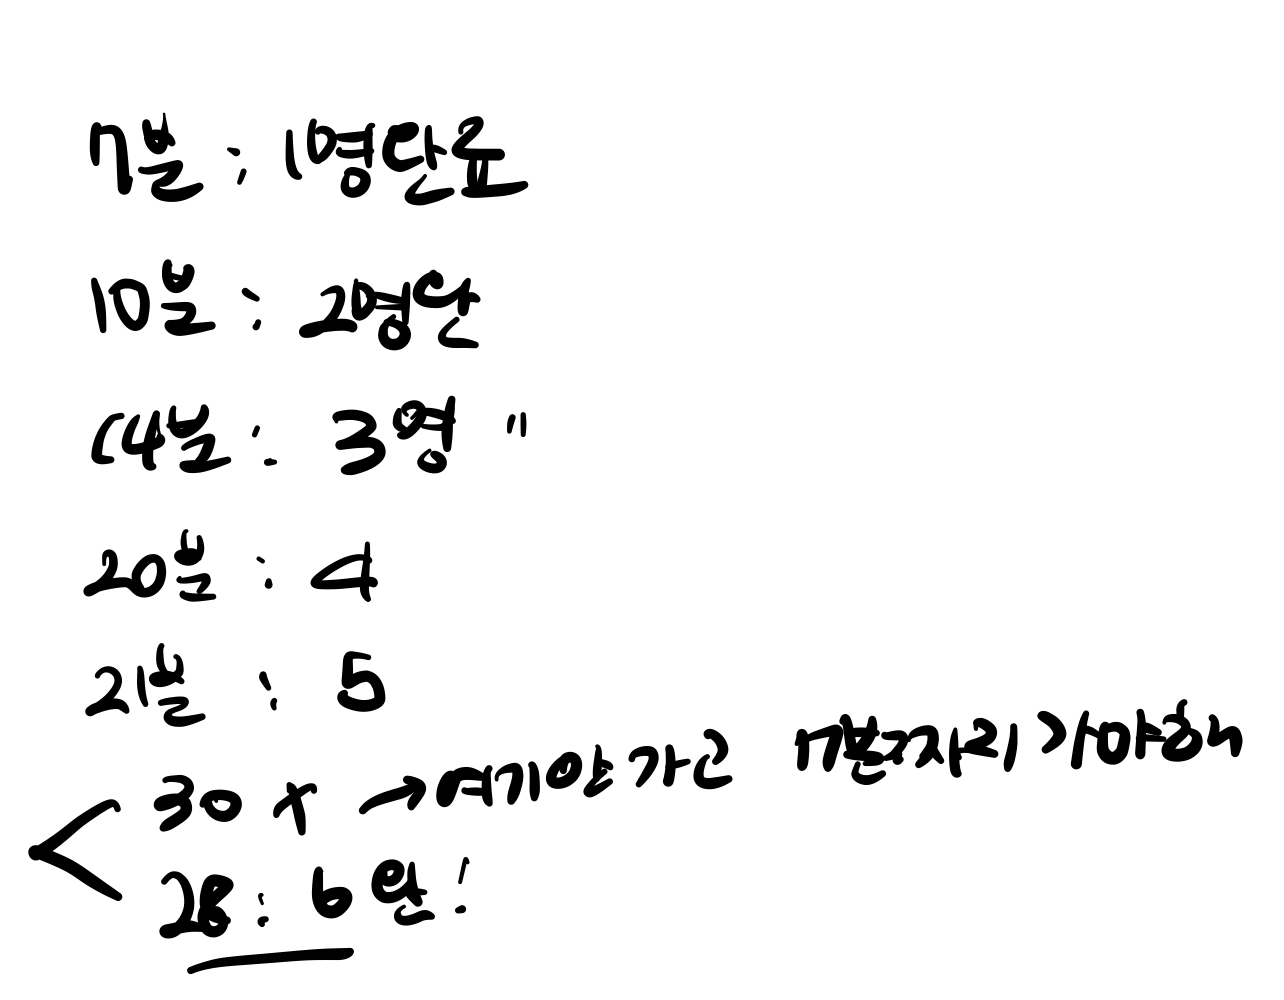 7분 : 1명완료
10분 : 2명완
14분 : 3명 "
20분 : 4
21분 : 5
30 x → 여기안가고 7분짜리가야해
28 : 6완!